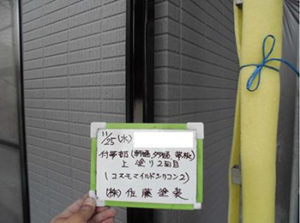 11/25 (水)
付帯部(
上塗り2回目
(コスモマイルドシリコン2)
(株)佐藤塗装